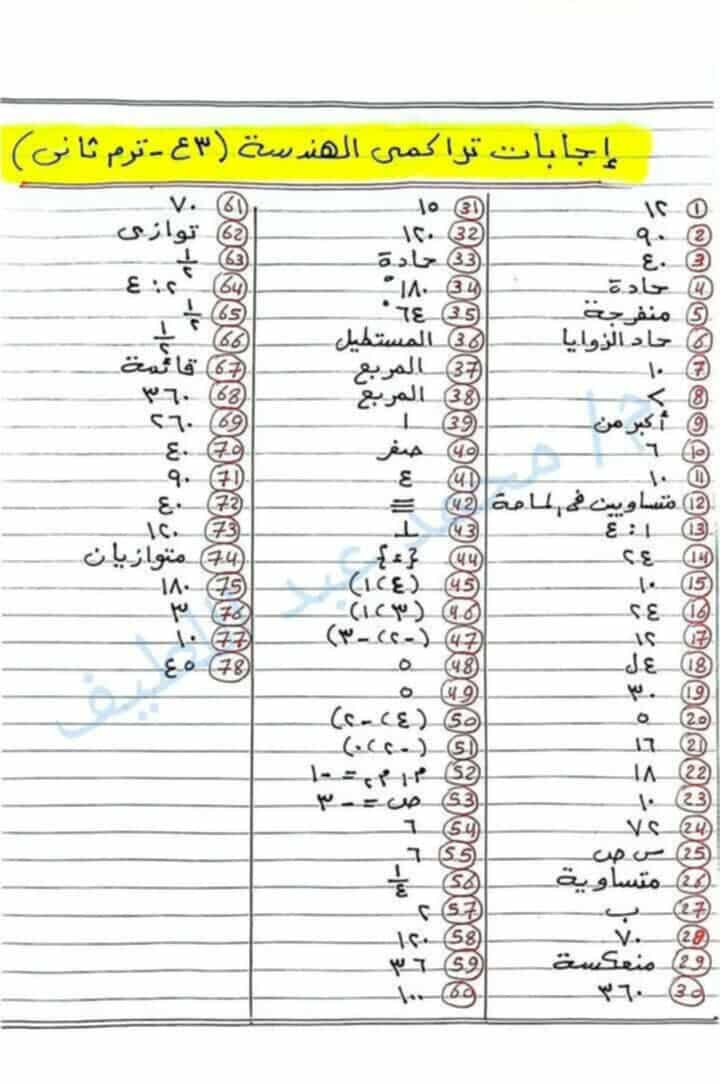 إجابات تراكمى الهندسة (٣ع - ترم ثانى)
1 ١٢
2 ٩٠
3 ٤٠
4 حادة
5 منفرجة
6 حاد الزوايا
7 ١٠
8 >
9 أكبر من
10 ٦
11 ١٠
12 متساويين فى المساحة
13 ١ : ٤
14 ٢٤
15 ١٠
16 ٢٤
17 ١٢
18 ٤ل
19 ٣٠
20 ٥
21 ١٦
22 ١٨
23 ١٠
24 ٧٢
25 س ص
26 متساوية
27 ب
28 ٧٠
29 منعكسة
30 ٣٦٠
31 ١٥
32 ١٢٠
33 حادة
34 ١٨٠°
35 ٦٤°
36 المستطيل
37 المربع
38 المربع
39 ١
40 صفر
41 ٤
42 ≡
43 ⊥
44 {ء}
45 (٤، ١)
46 (٣، ١)
47 (-٢، -٣)
48 ٥
49 ٥
50 (٤، -٢)
51 (-٢، ٠)
52 م١ م٢ = -١
53 ص = -٣
54 ٦
55 ٦
56 ١/٤
57 ٢
58 ١٢٠
59 ٣٦
60 ١٠٠
61 ٧٠
62 توازى
63 ١/٢
64 ٢ : ٤
65 ١/٢
66 ١/٢
67 قائمة
68 ٣٦٠
69 ٢٦٠
70 ٤٠
71 ٩٠
72 ٤٠
73 ١٢٠
74 متوازيان
75 ١٨٠
76 ٣
77 ١٠
78 ٤٥
م/ محمد عبد اللطيف